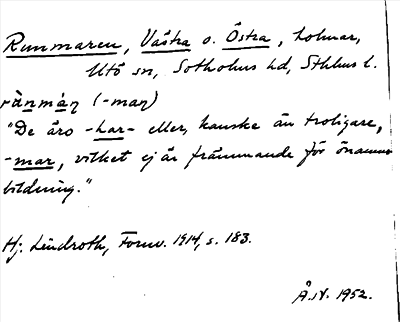 Runmaren, Västra o. Östra, holmar,
Utö sn, Sotholms hd, Sthlms l.
(-maɳ)
"De äro -har- eller, kanske än troligare,
-mar, vilket ej är främmande för önamns-
bildning."
Hj. Lindroth, Fornv. 1914, s. 183.
Å.N. 1952.